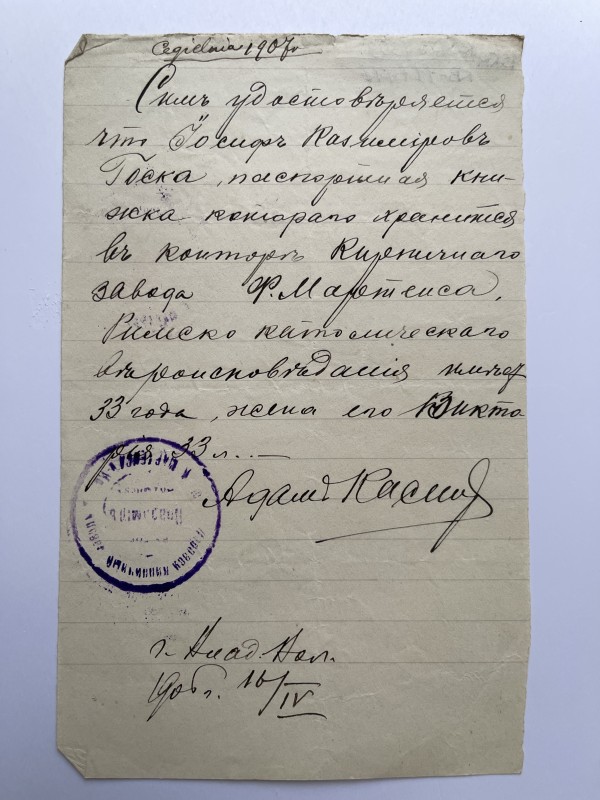 Cegielnia 1907r
Симъ удостовѣряется
что Іосифъ Казиміровъ
Госка, паспортная кни-
жка котораго хранится
въ конторѣ Кирпичнаго
завода Ф. Мартенса,
Римско католическаго
вѣроисповѣданія имѣетъ
33 года, жена его Викто-
рія 33 л. —
Адамъ
КИРПИЧНЫЙ
г.
1906 г. 16/IV